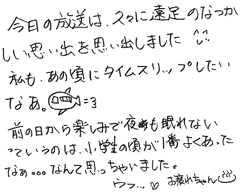 今日の放送は、久々に遠足のなつか
しい思い出を思い出しました ^^
私も、あの頃にタイムスリップしたい
なあ。=3
前の日から楽しみで夜も眠れない
っていうのは、小学生の頃が1番よくあった
なぁ…なんて思っちゃいました。
ウフッ…♡ お疲れちゃん